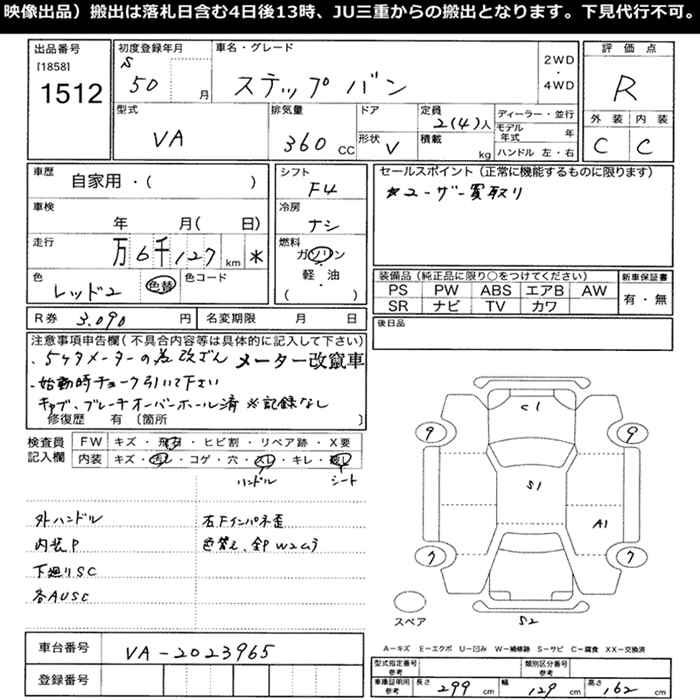 映像出品）搬出は落札日含む4日後13時、JU三重からの搬出となります。下見代行不可。
出品番号
[1858]
1512
初度登録年月
S
50 月
車名・グレード
ステップバン
2WD
・
4WD
評価点
R
外装 内装
C C
型式
VA
排気量
360 CC
ドア
形状 V
定員
2(4)人
積載 kg
ディーラー・並行
モデル年式 年
ハンドル 左・右
車歴
自家用・( )
車検
年 月( 日)
走行
万 6千127 km *
色
レッド2 色替
色コード
シフト
F4
冷房
ナシ
燃料
ガソリン
・
軽・油
( )
セールスポイント（正常に機能するものに限ります）
*ユーザー買取り
装備品（純正品に限り○をつけてください）
PS PW ABS エアB AW
SR ナビ TV カワ
新車保証書
有・無
R券 3,090 円
名変期限 月 日
後日品
注意事項申告欄（不具合内容等は具体的に記入して下さい）
、5ケタメーターの為改ざん メーター改竄車
・始動時チョーク引いて下さい
キャブ、ブレーキオーバーホール済 ※記録なし
修復歴 有〔箇所 〕
検査員
記入欄
FW キズ・飛石・ヒビ割・リペア跡・X要
内装 キズ・汚レ・コゲ・穴・スレ・キレ・破レ
ハンドル シート
外ハンドル
内装P
下廻りSC
各AUSC
右Fインパネ歪
色替え、全PWユムラ
C1
9 9
S1
A1
7 7
スペア
S2
A−キズ E−エクボ U−凹み W−補修跡 S−サビ C−腐食 XX−交換済
車台番号 VA-2023965
登録番号
型式指定番号 参考
類別区分番号 参考
車庫証明用 参考
長さ 299 cm
幅 129 cm
高さ 162 cm